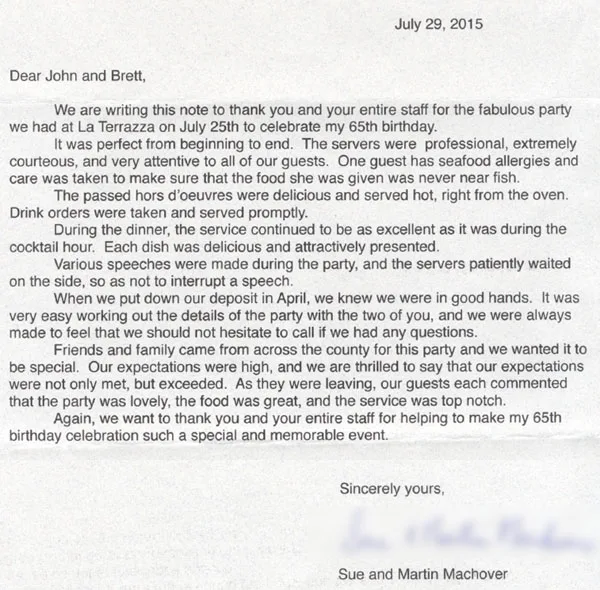 July 29, 2015
Dear John and Brett,
We are writing this note to thank you and your entire staff for the fabulous party
we had at La Terrazza on July 25th to celebrate my 65th birthday.
It was perfect from beginning to end. The servers were professional, extremely
courteous, and very attentive to all of our guests. One guest has seafood allergies and
care was taken to make sure that the food she was given was never near fish.
The passed hors d'oeuvres were delicious and served hot, right from the oven.
Drink orders were taken and served promptly.
During the dinner, the service continued to be as excellent as it was during the
cocktail hour. Each dish was delicious and attractively presented.
Various speeches were made during the party, and the servers patiently waited
on the side, so as not to interrupt a speech.
When we put down our deposit in April, we knew we were in good hands. It was
very easy working out the details of the party with the two of you, and we were always
made to feel that we should not hesitate to call if we had any questions.
Friends and family came from across the county for this party and we wanted it to
be special. Our expectations were high, and we are thrilled to say that our expectations
were not only met, but exceeded. As they were leaving, our guests each commented
that the party was lovely, the food was great, and the service was top notch.
Again, we want to thank you and your entire staff for helping to make my 65th
birthday celebration such a special and memorable event.
Sincerely yours,
Sue and Martin Machover